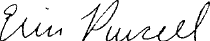 Erin Purcell